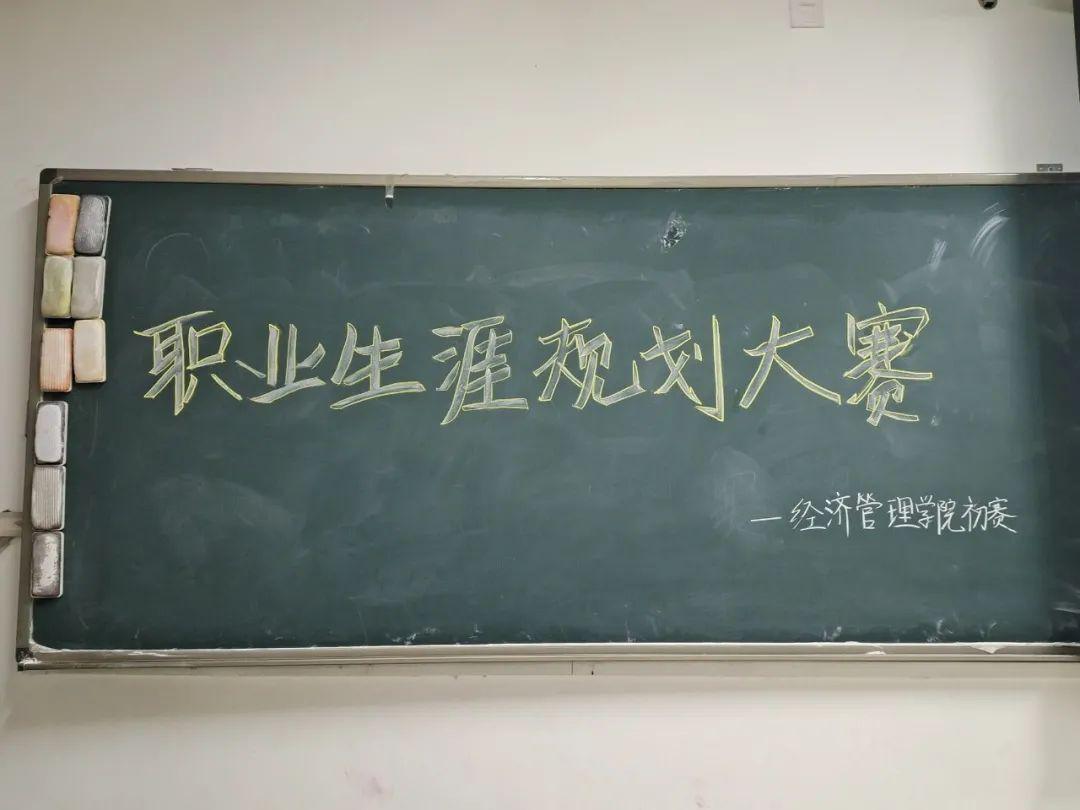 职业生涯规划大赛
—经济管理学院初赛